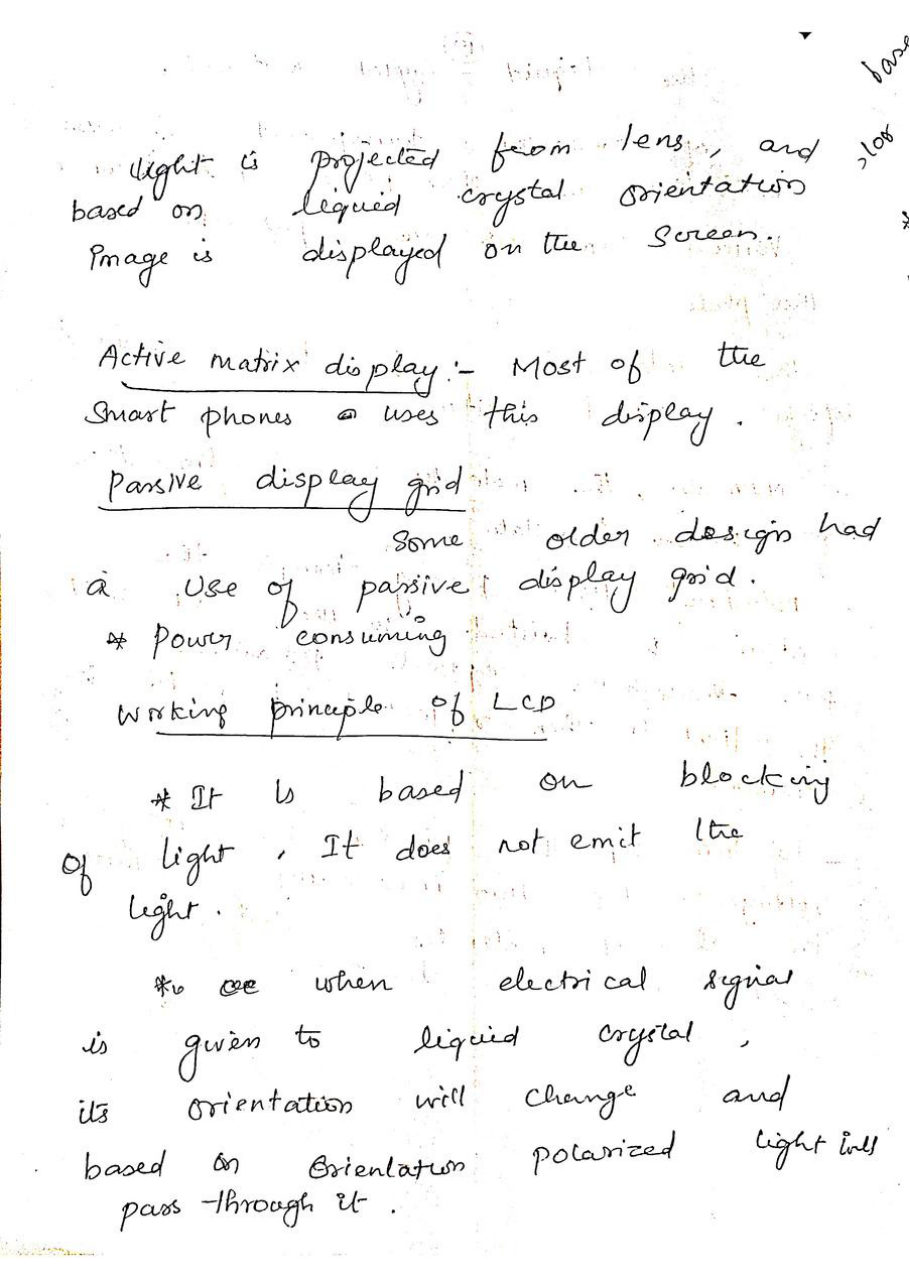 light is projected from lens, and
based on liquid crystal orientation
Image is displayed on the screen.
Active matrix display :- Most of the
Smart phones uses this display.
Passive display grid
Some older design had
a use of passive display grid.
* Power consuming
Working principle of LCD
* It is based on blocking
of light, It does not emit the
light.
* when electrical signal
is given to liquid crystal,
its orientation will change and
based on orientation polarized light will
pass through it.